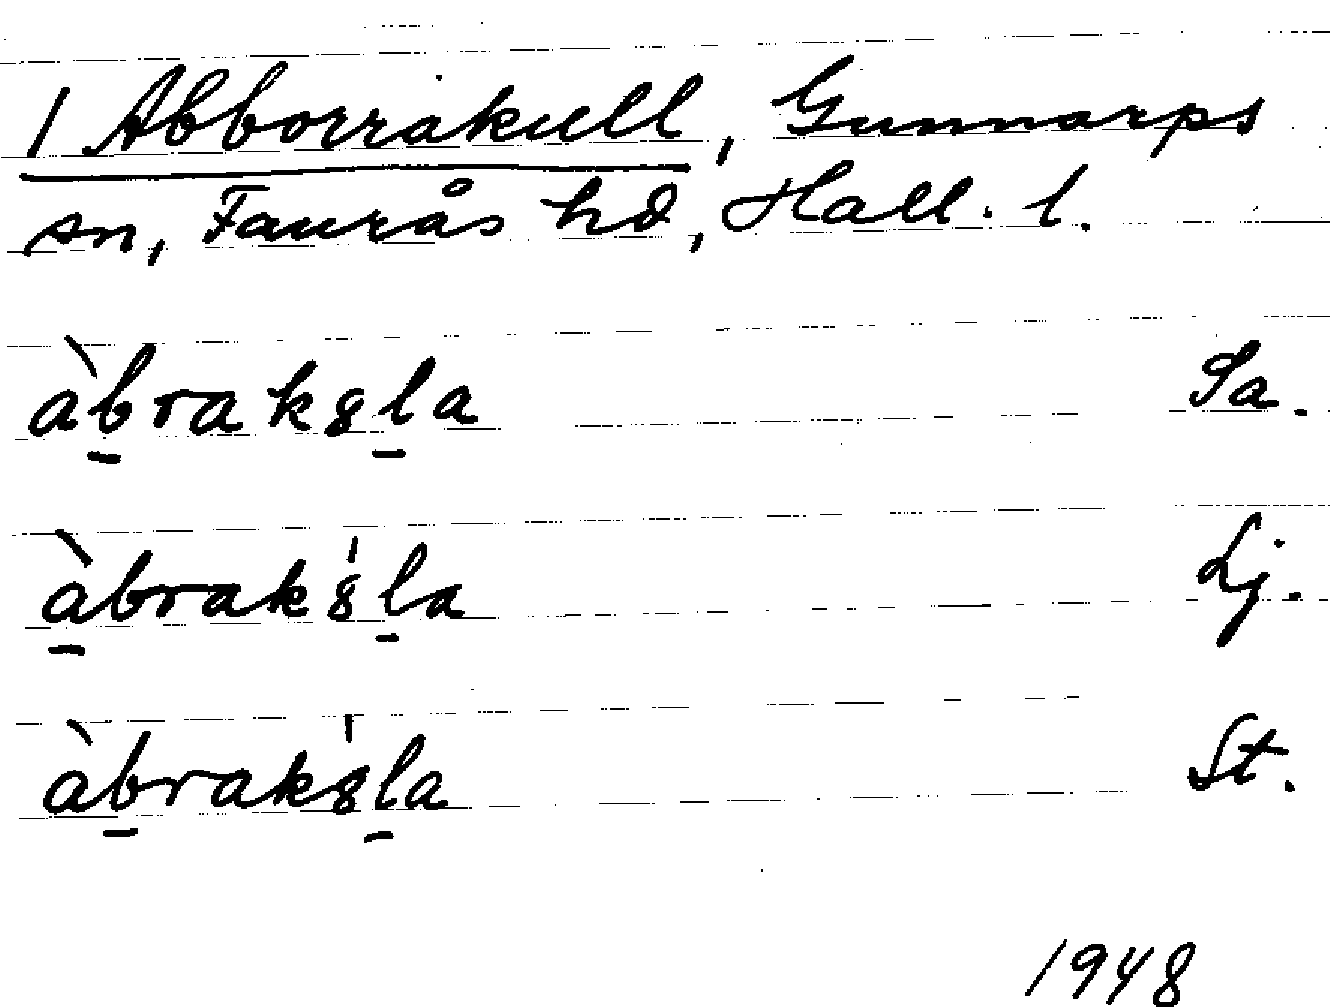 1 Abborrakull, Gunnarps
sn, Faurås hd, Hall. l.
àbrak8la Sa.
àbrak8la Lj.
àbrak8la St.
1948